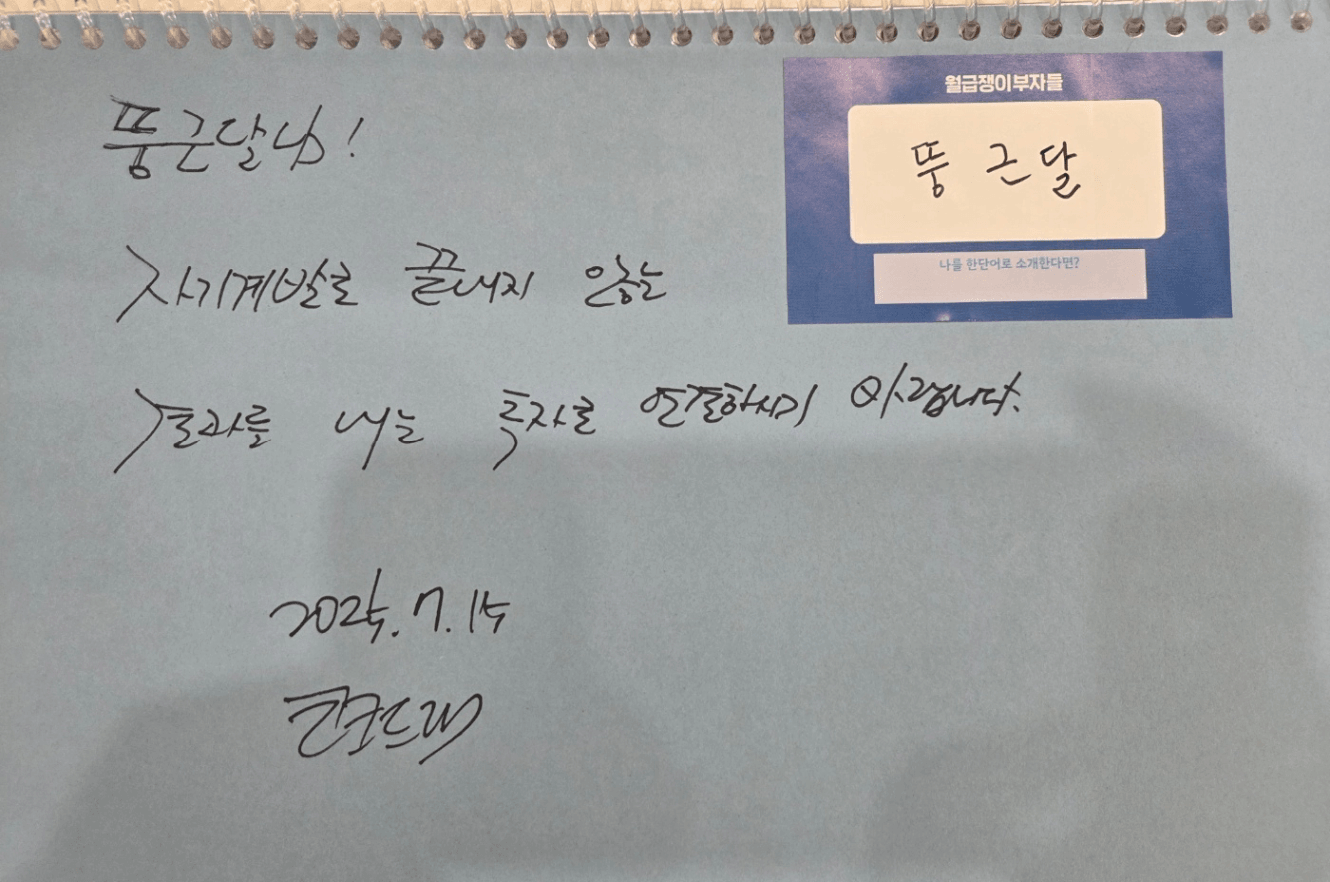 뚱근달님!
월급쟁이부자들
뚱근달
나를 한단어로 소개한다면?
자기계발로 끝내지 않는
결과를 내는 투자로 연결하시기 바랍니다.
2025.7.15